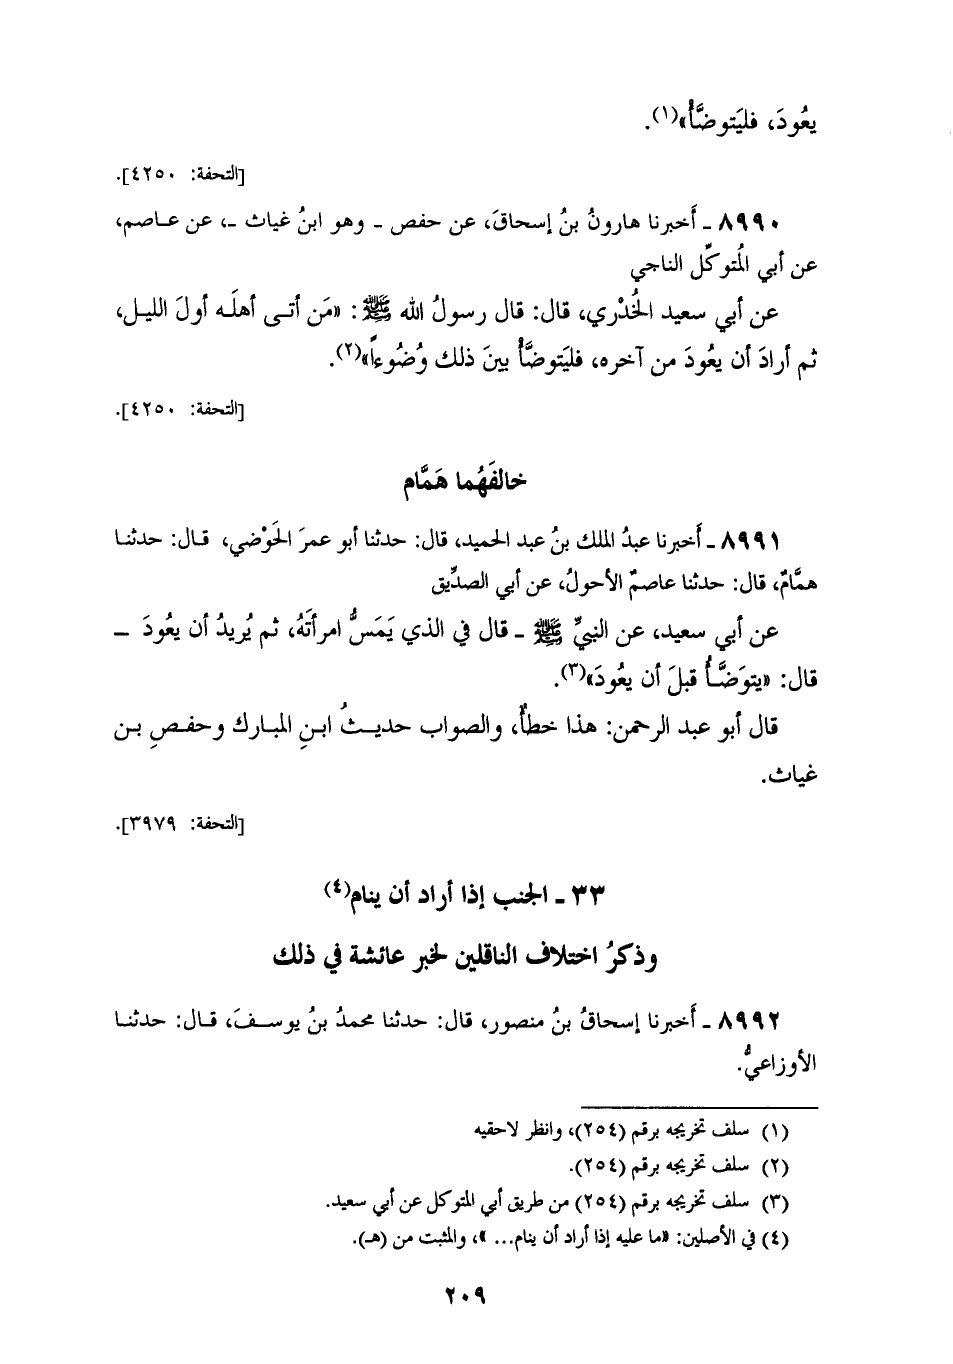 يعُودَ، فليَتوضَّأْ»(١).
[التحفة: ٤٢٥٠].
٨٩٩٠ ـ أَخبرنا هارونُ بنُ إسحاقَ، عن حفص ـ وهو ابنُ غياث ـ، عن عـاصم،
عن أبي المُتوكِّل الناجي
عن أبي سعيد الخُدْري، قال: قال رسولُ الله ﷺ: «مَن أتـى أهلَـه أولَ الليـل،
ثم أرادَ أن يعُودَ من آخره، فليَتوضَّأْ بينَ ذلك وُضُوءاً»(٢).
[التحفة: ٤٢٥٠].
خالفَهُما هَمَّام
٨٩٩١ ـ أَخبرنا عبدُ الملك بنُ عبد الحميد، قال: حدثنا أبو عمرَ الحَوْضي، قـال: حدثنـا
همَّامٌ، قال: حدثنا عاصمٌ الأحولُ، عن أبي الصدِّيق
عن أبي سعيد، عن النبيِّ ﷺ ـ قال في الذي يَمَسُّ امرأتَهُ، ثم يُريدُ أن يعُودَ ـ
قال: «يتوَضَّـأُ قبلَ أن يعُودَ»(٣).
قال أبو عبد الرحمن: هذا خطأٌ، والصواب حديـثُ ابـنِ المبـارك وحفـصِ بـن
غياث.
[التحفة: ٣٩٧٩].
٣٣ ـ الجنب إذا أراد أن ينام(٤)
وذكرُ اختلاف الناقلين لخبر عائشة في ذلك
٨٩٩٢ ـ أَخبرنا إسحاقُ بنُ منصور، قال: حدثنا محمدُ بنُ يوسـفَ، قـال: حدثنـا
الأوزاعيُّ.
(١) سلف تخريجه برقم (٢٥٤)، وانظر لاحقيه
(٢) سلف تخريجه برقم (٢٥٤).
(٣) سلف تخريجه برقم (٢٥٤) من طريق أبي المتوكل عن أبي سعيد.
(٤) في الأصلين: «ما عليه إذا أراد أن ينام... »، والمثبت من (هـ).
٢٠٩